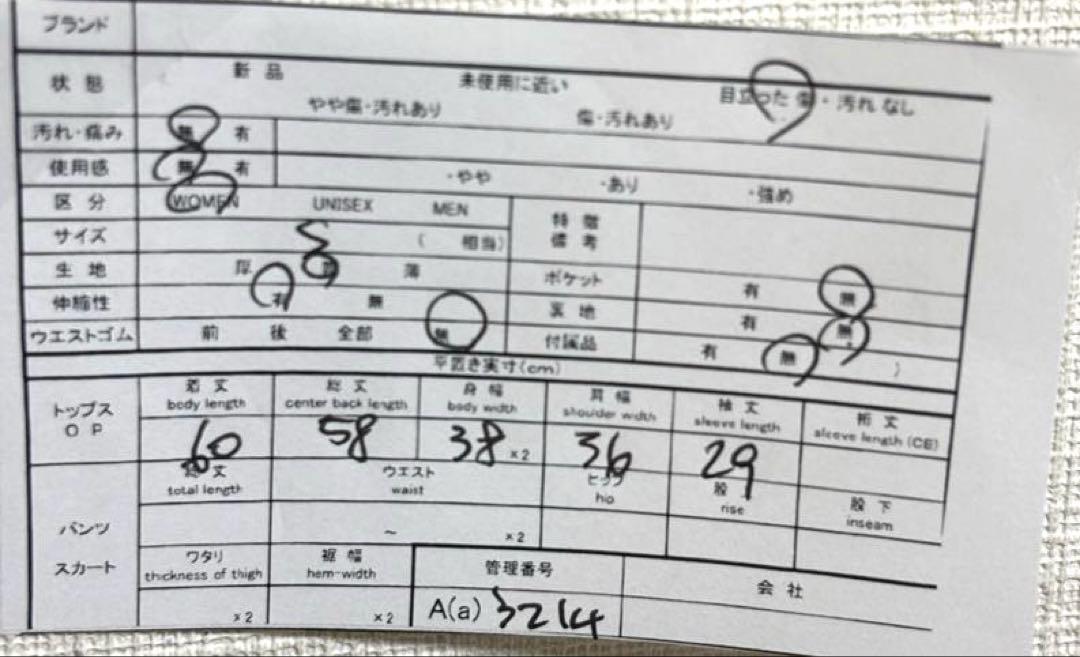 ブランド
状態 新品 未使用に近い 目立った傷・汚れなし
やや傷・汚れあり 傷・汚れあり
汚れ・痛み 無 有
使用感 無 有 ・やや ・あり ・強め
区分 WOMEN UNISEX MEN 特徴
備考
サイズ S ( 相当)
生地 厚 薄 ポケット 有 無
伸縮性 有 無 裏地 有 無
ウエストゴム 前 後 全部 無 付属品 有 無 )
平置き実寸(cm)
トップス
OP
着丈 総丈 身幅 肩幅 袖丈 裄丈
body length center back length body width shoulder width sleeve length sleeve length (CB)
60 58 38 ×2 36 29
総丈 ウエスト ヒップ 股 股下
total length waist hip rise inseam
パンツ ~ ×2
スカート ワタリ 裾幅 管理番号 会社
thickness of thigh hem-width
×2 ×2 A(a) 3214